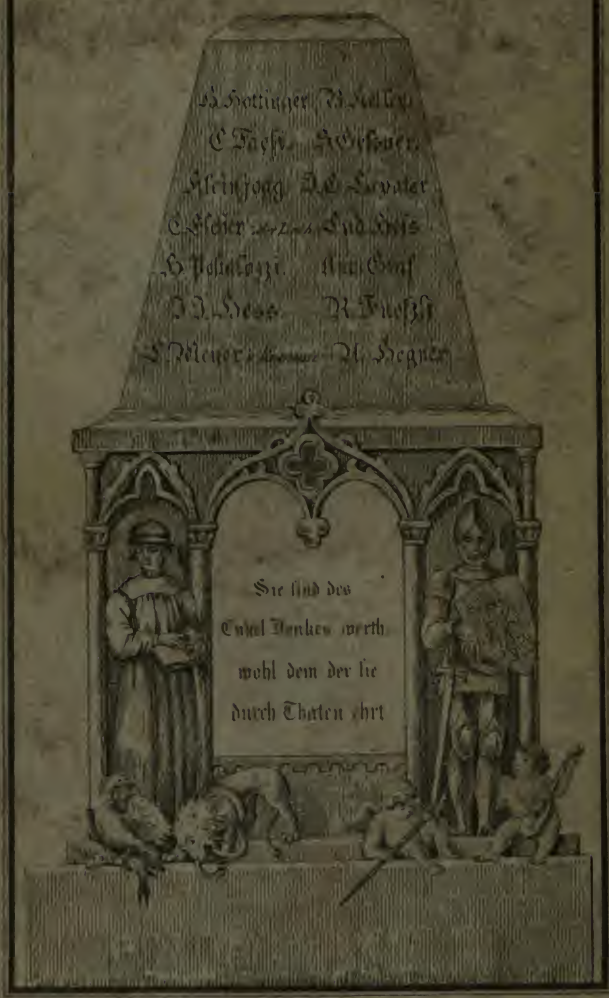 H. Hottinger B. Keller
C. Faesi. S. Gessner.
Kleinjogg J. C. Lavater
C. Escher Lud. Hess
H. Pestalozzi. Ant. Graf
J. J. Hess. R. Fuessli
L. Meyer U. Hegner
Sie sind des
Enkel Denkens werth
wohl dem der sie
durch Thaten ehrt